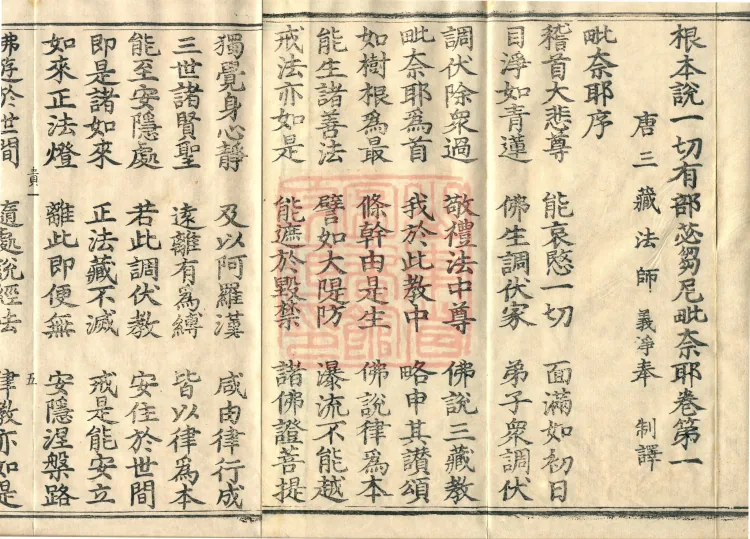 根本說一切有部苾芻尼毗奈耶卷第一
唐三藏法師義淨奉 制譯
毗奈耶序
稽首大悲尊 能哀愍一切 面滿如初日
目淨如青蓮 佛生調伏家 弟子衆調伏
調伏除衆過 敬禮法中尊 佛說三藏教
毗奈耶爲首 我於此教中 略申其讚頌
如樹根爲最 條幹由是生 佛說律爲本
能生諸善法 譬如大隄防 瀑流不能越
戒法亦如是 能遮於毀禁 諸佛證菩提
獨覺身心靜 及以阿羅漢 咸由律行成
三世諸賢聖 遠離有爲縛 皆以律爲本
能至安隱處 若此調伏教 安住於世間
即是諸如來 正法藏不滅 戒是能安立
如來正法燈 離此即便無 安隱涅槃路
五
佛遊於世間 隨處說經法 律教亦如是